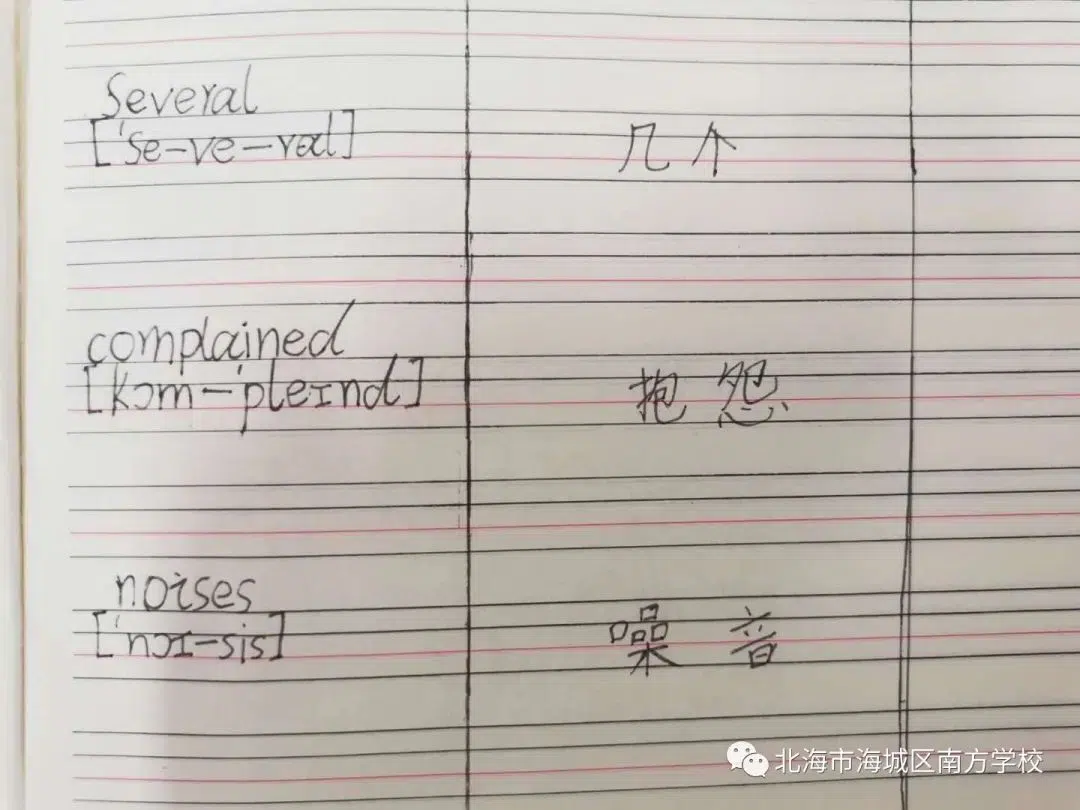 Several
['se-ve-rəl] 几个
complained
[kɔm-'pleɪnd] 抱怨
noises
['nɔɪ-sis] 噪音
北海市海城区南方学校